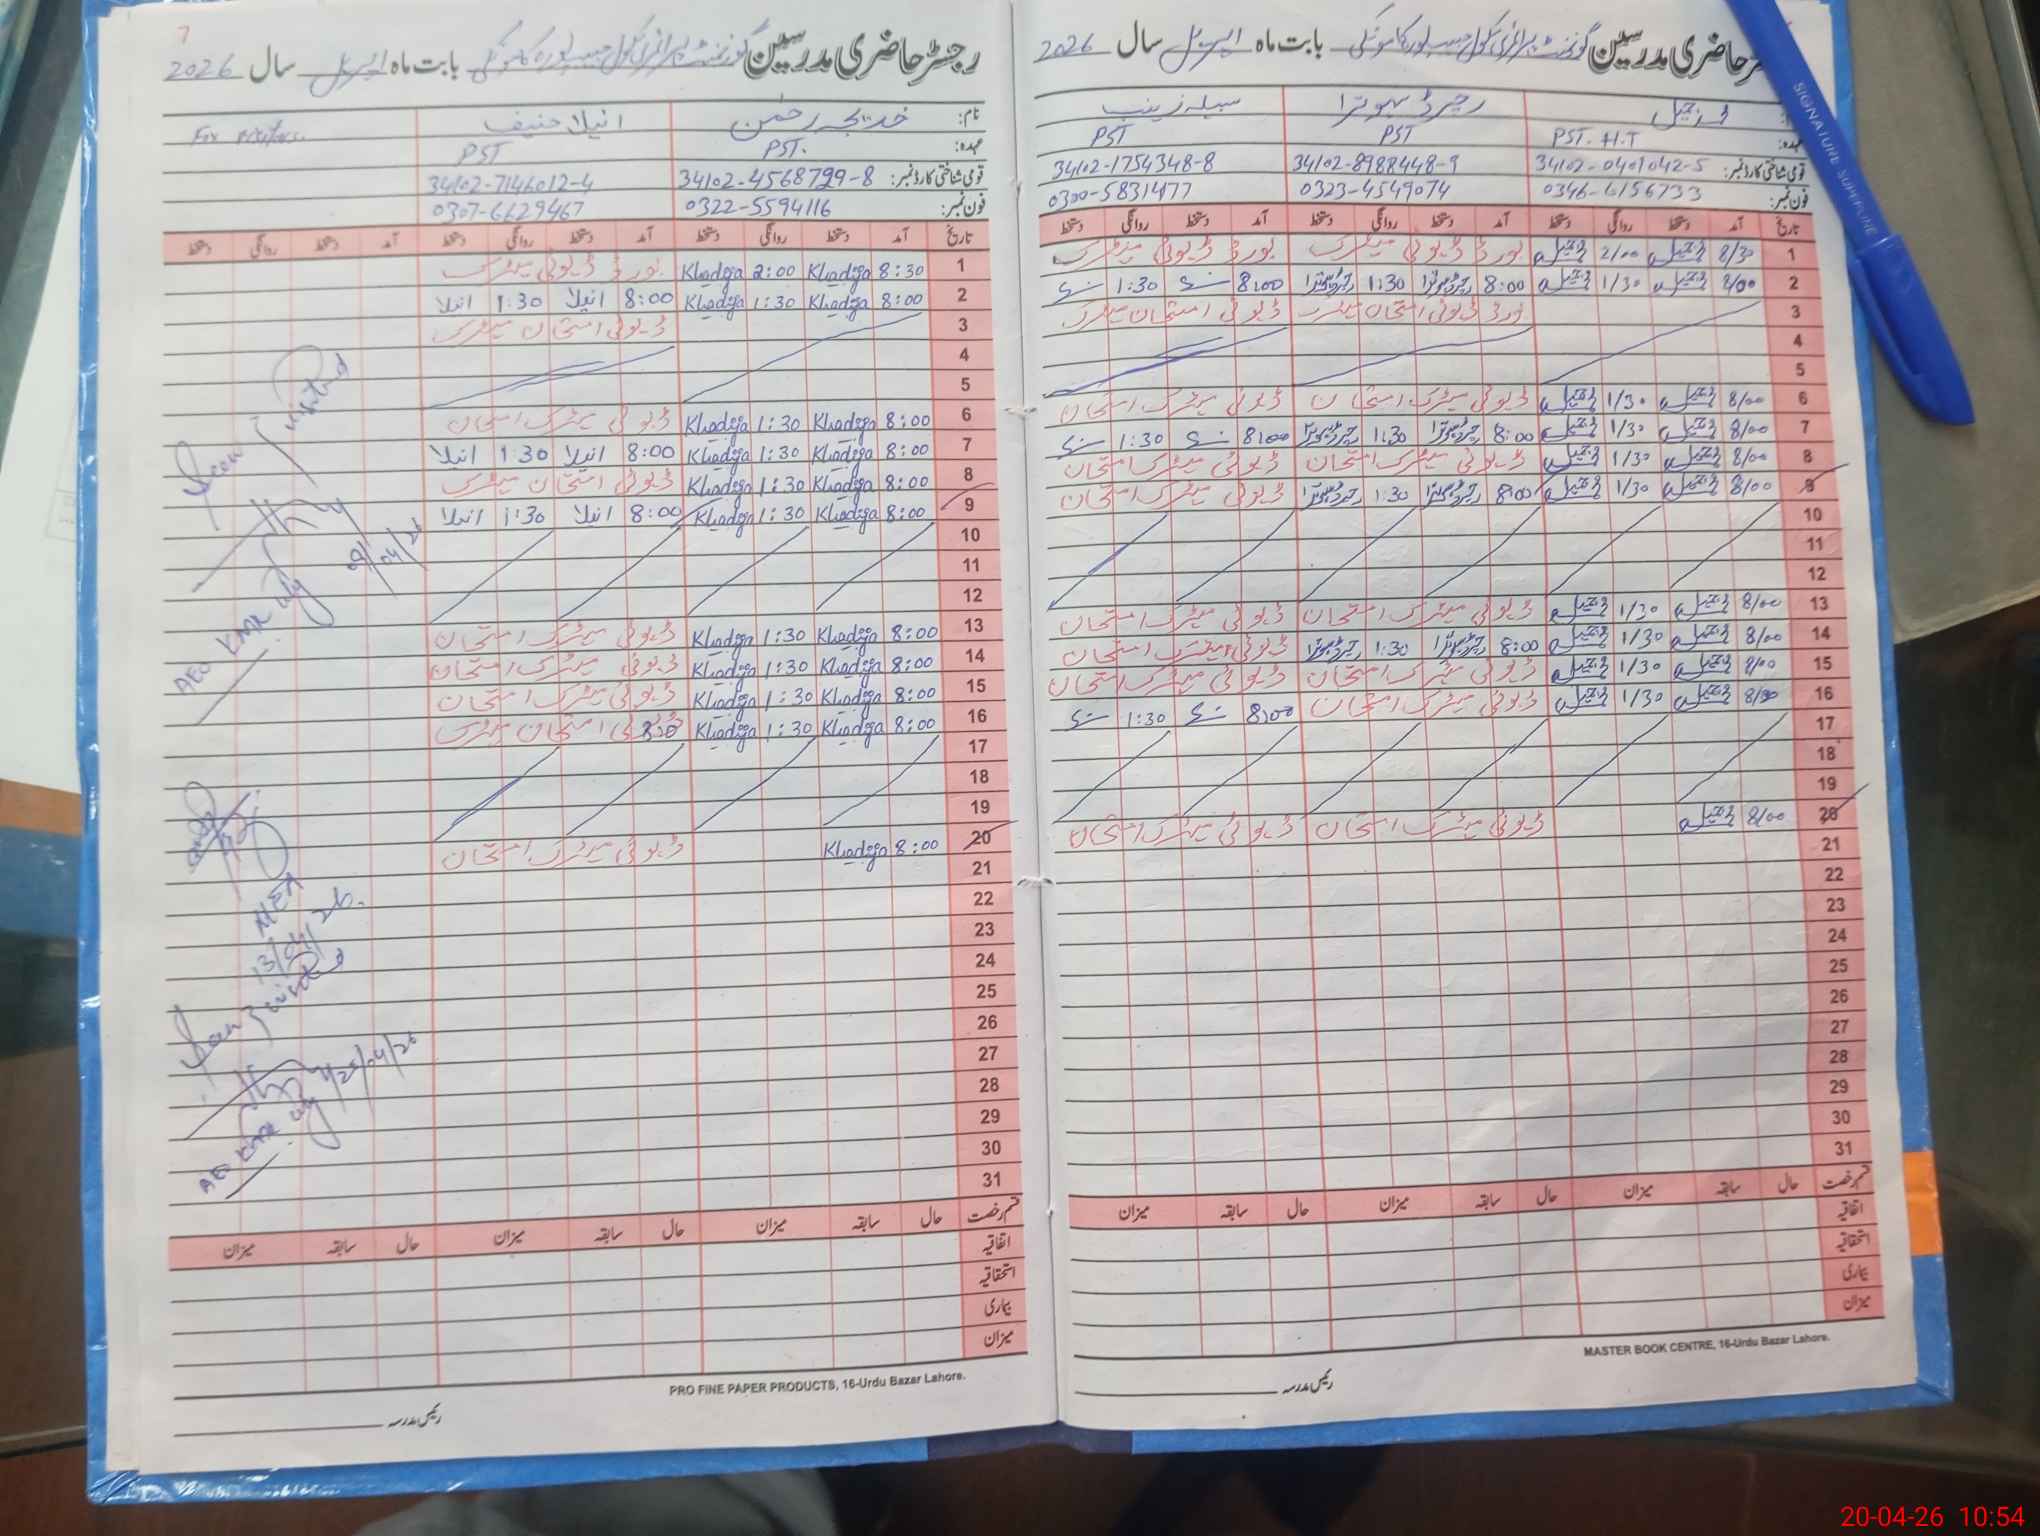 رجسٹر حاضری مدرسین گورنمنٹ پرائمری سکول حبیب پورہ کامونکی بابت ماہ اپریل سال 2026
نام: خدیجہ رحمٰن انیلا حنیف For visitors.
عہدہ: PST. PST
قومی شناختی کارڈ نمبر: 34102-4568799-8 34102-7146012-4
فون نمبر: 0322-5594116 0307-6629467
تاریخ آمد دستخط روانگی دستخط آمد دستخط روانگی دستخط آمد دستخط روانگی دستخط
1 8:30 Khadeja 2:00 Khadeja بورڈ ڈیوٹی میٹرک
2 8:00 Khadeja 1:30 Khadeja 8:00 انیلا 1:30 انیلا
3 ڈیوٹی امتحان میٹرک
4
5
6 8:00 Khadeja 1:30 Khadeja ڈیوٹی میٹرک امتحان
7 8:00 Khadeja 1:30 Khadeja 8:00 انیلا 1:30 انیلا
8 8:00 Khadeja 1:30 Khadeja ڈیوٹی امتحان میٹرک
9 8:00 Khadeja 1:30 Khadeja 8:00 انیلا 1:30 انیلا
10
11
12
13 8:00 Khadeja 1:30 Khadeja ڈیوٹی میٹرک امتحان
14 8:00 Khadeja 1:30 Khadeja ڈیوٹی میٹرک امتحان
15 8:00 Khadeja 1:30 Khadeja ڈیوٹی میٹرک امتحان
16 8:00 Khadeja 1:30 Khadeja ڈیوٹی امتحان میٹرک
17
18
19
20 8:00 Khadeja ڈیوٹی میٹرک امتحان
21
22
23
24
25
26
27
28
29
30
31
Seen & visited
09/04/26
AEO KMK
MEA
13/04/26.
Seen & visited
20/04/26
AEO KMK
قسم رخصت حال سابقہ میزان حال سابقہ میزان حال سابقہ میزان
اتفاقیہ
استحقاقیہ
بیماری
میزان
PRO FINE PAPER PRODUCTS, 16-Urdu Bazar Lahore.
رئیس مدرسہ
حاضری مدرسین گورنمنٹ پرائمری سکول حبیب پورہ کامونکی بابت ماہ اپریل سال 2026
رچرڈ بھوترا زینب
عہدہ: PST. H.T PST PST
قومی شناختی کارڈ نمبر: 34102-0401042-5 34102-8988448-9 34102-1754348-8
فون نمبر: 0346-6156733 0323-4549074 0300-5831477
تاریخ آمد دستخط روانگی دستخط آمد دستخط روانگی دستخط آمد دستخط روانگی دستخط
1 8/30 2/00 بورڈ ڈیوٹی میٹرک بورڈ ڈیوٹی میٹرک
2 8/00 1/30 8:00 1:30 8:00 1:30
3 بورڈ ڈیوٹی امتحان میٹرک ڈیوٹی امتحان میٹرک
4
5
6 8/00 1/30 ڈیوٹی میٹرک امتحان ڈیوٹی میٹرک امتحان
7 8/00 1/30 8:00 1:30 8:00 1:30
8 8/00 1/30 ڈیوٹی میٹرک امتحان ڈیوٹی میٹرک امتحان
9 8/00 1/30 8:00 1:30 ڈیوٹی میٹرک امتحان
10
11
12
13 8/00 1/30 ڈیوٹی میٹرک امتحان ڈیوٹی میٹرک امتحان
14 8/00 1/30 8:00 1:30 ڈیوٹی میٹرک امتحان
15 8/00 1/30 ڈیوٹی میٹرک امتحان ڈیوٹی میٹرک امتحان
16 8/00 1/30 ڈیوٹی میٹرک امتحان 8:00 1:30
17
18
19
20 8/00 ڈیوٹی میٹرک امتحان ڈیوٹی میٹرک امتحان
21
22
23
24
25
26
27
28
29
30
31
قسم رخصت حال سابقہ میزان حال سابقہ میزان حال سابقہ میزان
اتفاقیہ
استحقاقیہ
بیماری
میزان
MASTER BOOK CENTRE, 16-Urdu Bazar Lahore.
رئیس مدرسہ
SIGNATURE SUPERFINE
20-04-26 10:54